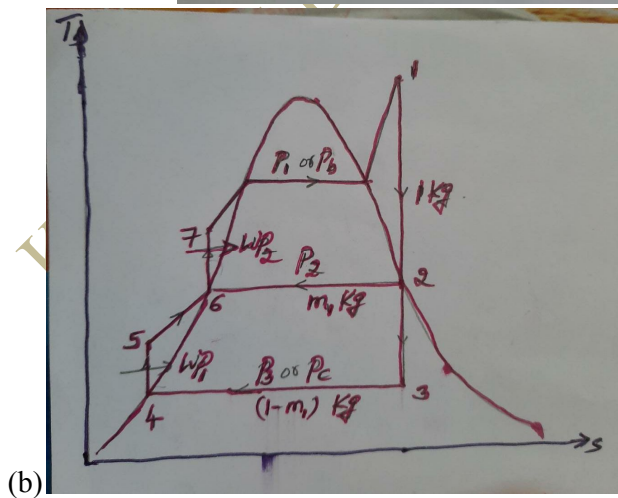 T
1
P1 or Pb
1 Kg
7
WP2
P2
2
6
m1 Kg
5
WP1
P3 or Pc
3
4
(1-m1) Kg
s
(b)